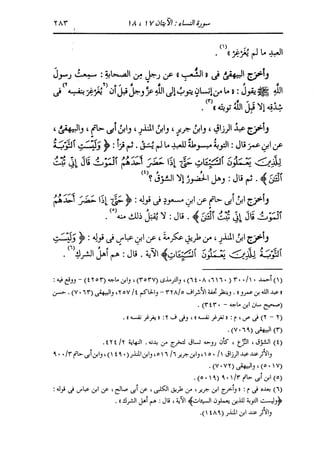 سورة النساء : الآيتان ١٧ ، ١٨ ٢٨٣
العبد ما لم يُغَرْغِرْ »(١) .
وأخرج البيهقى فى « الشُّعَبِ » عن رجلٍ من الصحابةِ : سمِعتُ رسولَ
اللَّهِ ﷺ يقولُ : « ما من إنسانٍ يتوبُ إلى اللَّهِ عزَّ وجلَّ قبلَ أن (٢) يُغَرْغِرَ بنفسِه (٢) فى
شِدْقِه إلا قبِل اللَّهُ توبتَه »(٣) .
وأخرج عبدُ الرزاقِ ، وابنُ جريرٍ ، وابنُ المنذرِ ، وابنُ أبى حاتمٍ ، والبيهقىُّ ،
عن ابنِ عمرَ قال : التوبةُ مبسوطةٌ للعبدِ ما لم يُسَقْ . ثم قرَأ : ﴿ وَلَيْسَتِ التَّوْبَةُ
لِلَّذِينَ يَعْمَلُونَ السَّيِّئَاتِ حَتَّى إِذَا حَضَرَ أَحَدَهُمُ الْمَوْتُ قَالَ إِنِّي تُبْتُ
الْآنَ ﴾ . ثم قال : وهل الحضورُ إلا السَّوْقُ ؟(٤)
وأخرج ابنُ أبى حاتمٍ عن ابنِ مسعودٍ فى قولِه : ﴿ حَتَّى إِذَا حَضَرَ أَحَدَهُمُ
الْمَوْتُ قَالَ إِنِّي تُبْتُ الْآنَ ﴾ . قال : لا يُقبَلُ ذلك منه(٥) .
وأخرج ابنُ المنذرِ ، من طريقِ عكرمةَ ، عن ابنِ عباسٍ فى قولِه : ﴿ وَلَيْسَتِ
التَّوْبَةُ لِلَّذِينَ يَعْمَلُونَ السَّيِّئَاتِ ﴾ الآية . قال : هم أهلُ الشركِ(٦) .
(١) أحمد ١٠/ ٣٠٠ (٦١٦٠ ، ٦٤٠٨) ، والترمذى (٣٥٣٧) ، وابن ماجه (٤٢٥٣) - ووقع فيه :
« عبد الله بن عمرو » . وينظر تحفة الأشراف ٥/ ٣٢٨ - والحاكم ٤/ ٢٥٧ ، والبيهقى (٧٠٦٣) . حسن
(صحيح سنن ابن ماجه - ٣٤٣٠) .
(٢ - ٢) فى ص ، م : « تغرغر نفسه » ، وفى ف ٢ : « يغرغر نفسه » .
(٣) البيهقى (٧٠٦٩) .
(٤) السَّوْق ، النزع ، كأن روحه تساق لتخرج من بدنه . النهاية ٢/ ٤٢٤ .
والأثر عند عبد الرزاق ١/ ١٥٠ ، وابن جرير ٦/ ٥١٦ ، وابن المنذر (١٤٩٠) ، وابن أبى حاتم ٣/ ٩٠٠
(٥٠١٧) ، والبيهقى (٧٠٧٢) .
(٥) ابن أبى حاتم ٣/ ٩٠١ (٥٠١٩) .
(٦) بعده فى م : « وأخرج ابن جرير ، من طريق الكلبى ، عن أبى صالح ، عن ابن عباس فى قوله :
﴿وليست التوبة للذين يعملون السيئات﴾ الآية ، قال : هم أهل الشرك » .
والأثر عند ابن المنذر (١٤٨٩) .